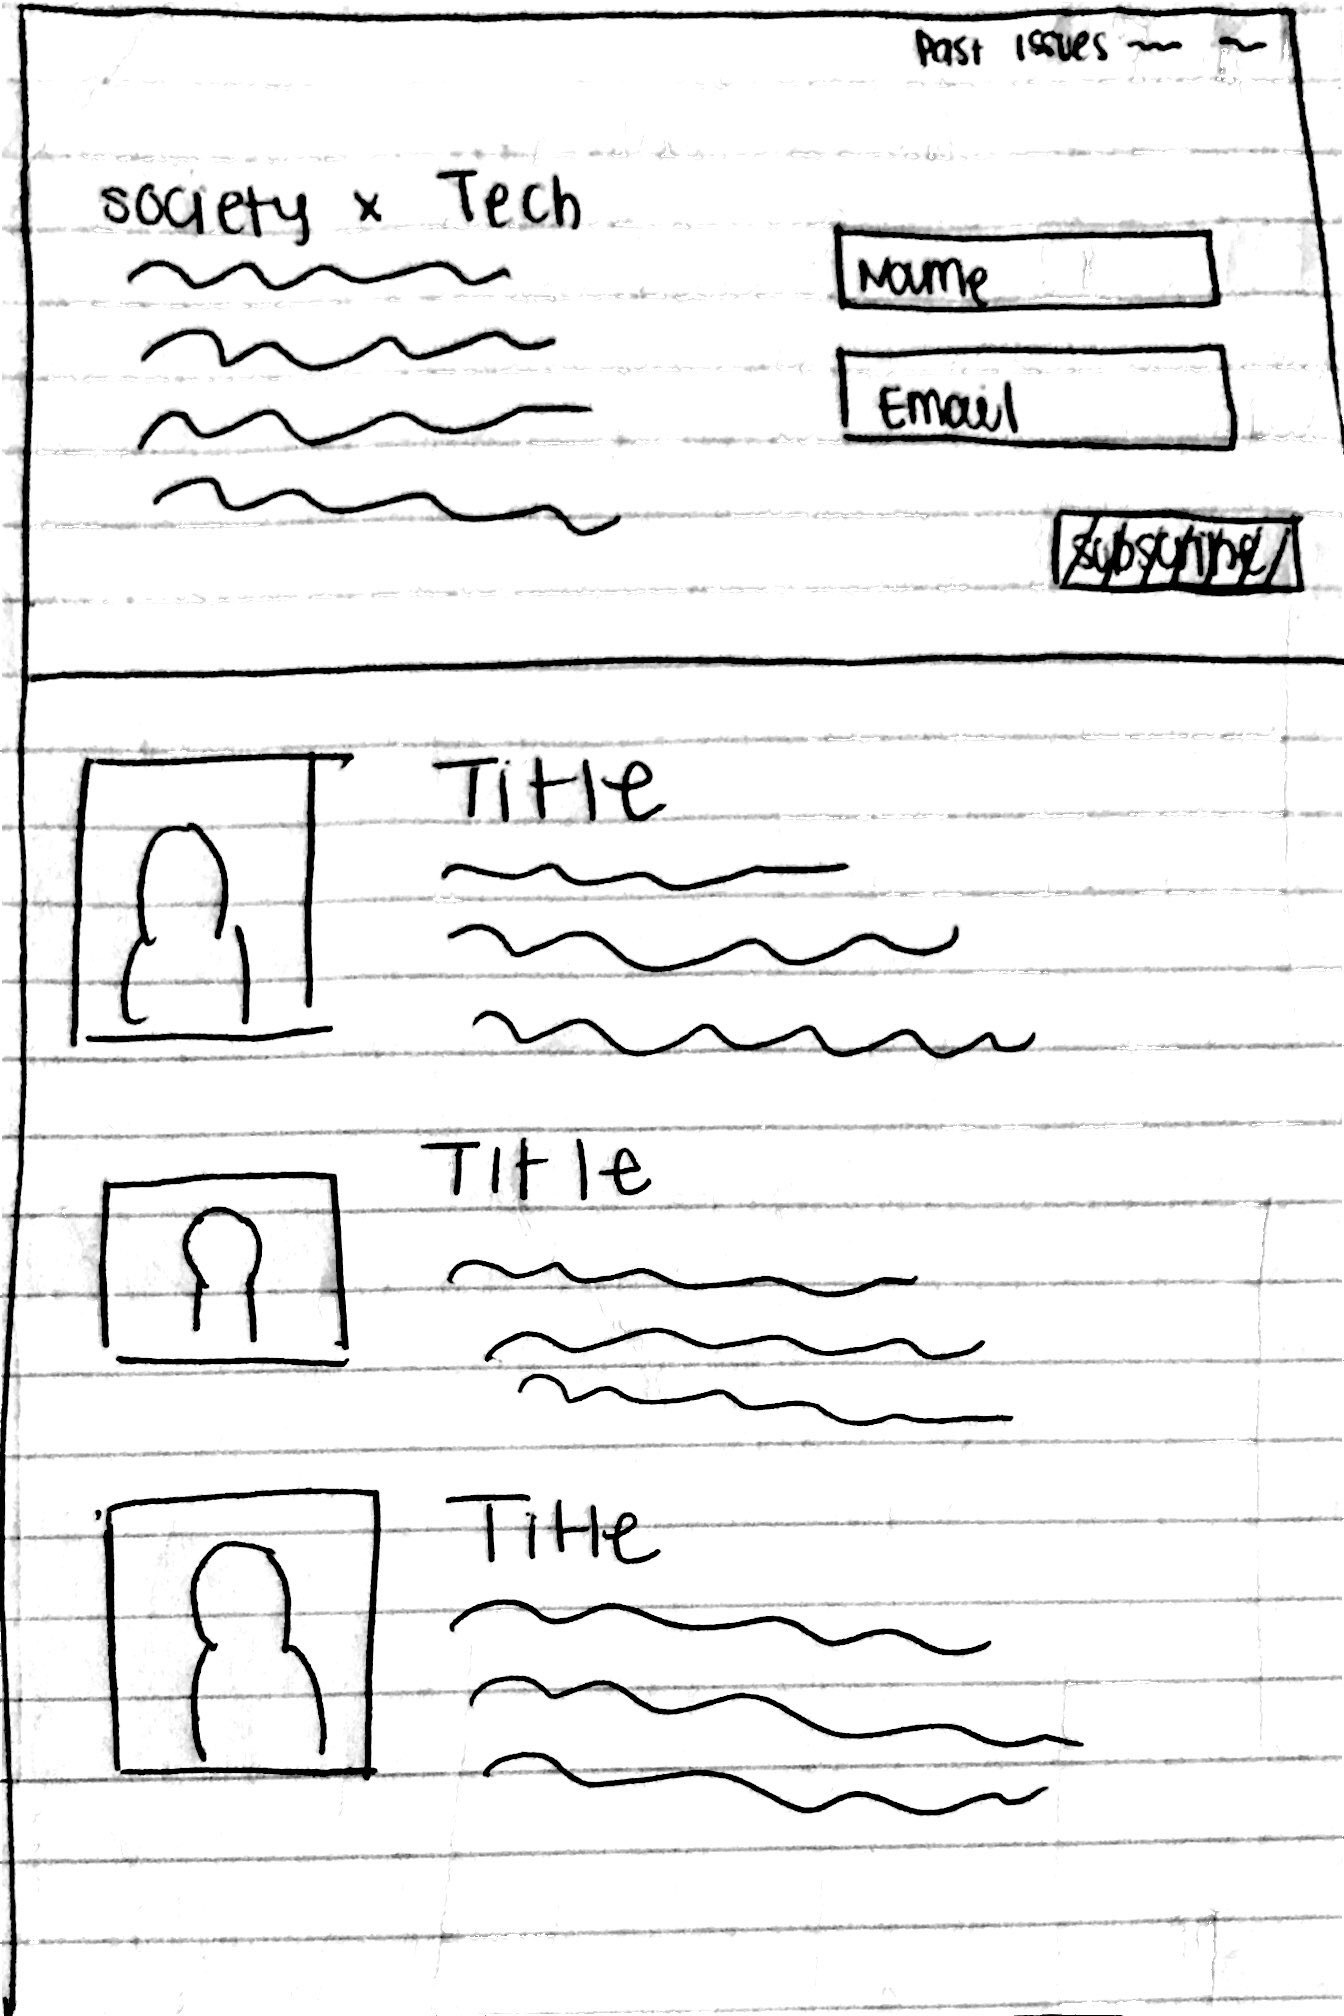 Past Issues
society x Tech
Name
Email
subscribe
Title
Title
Title